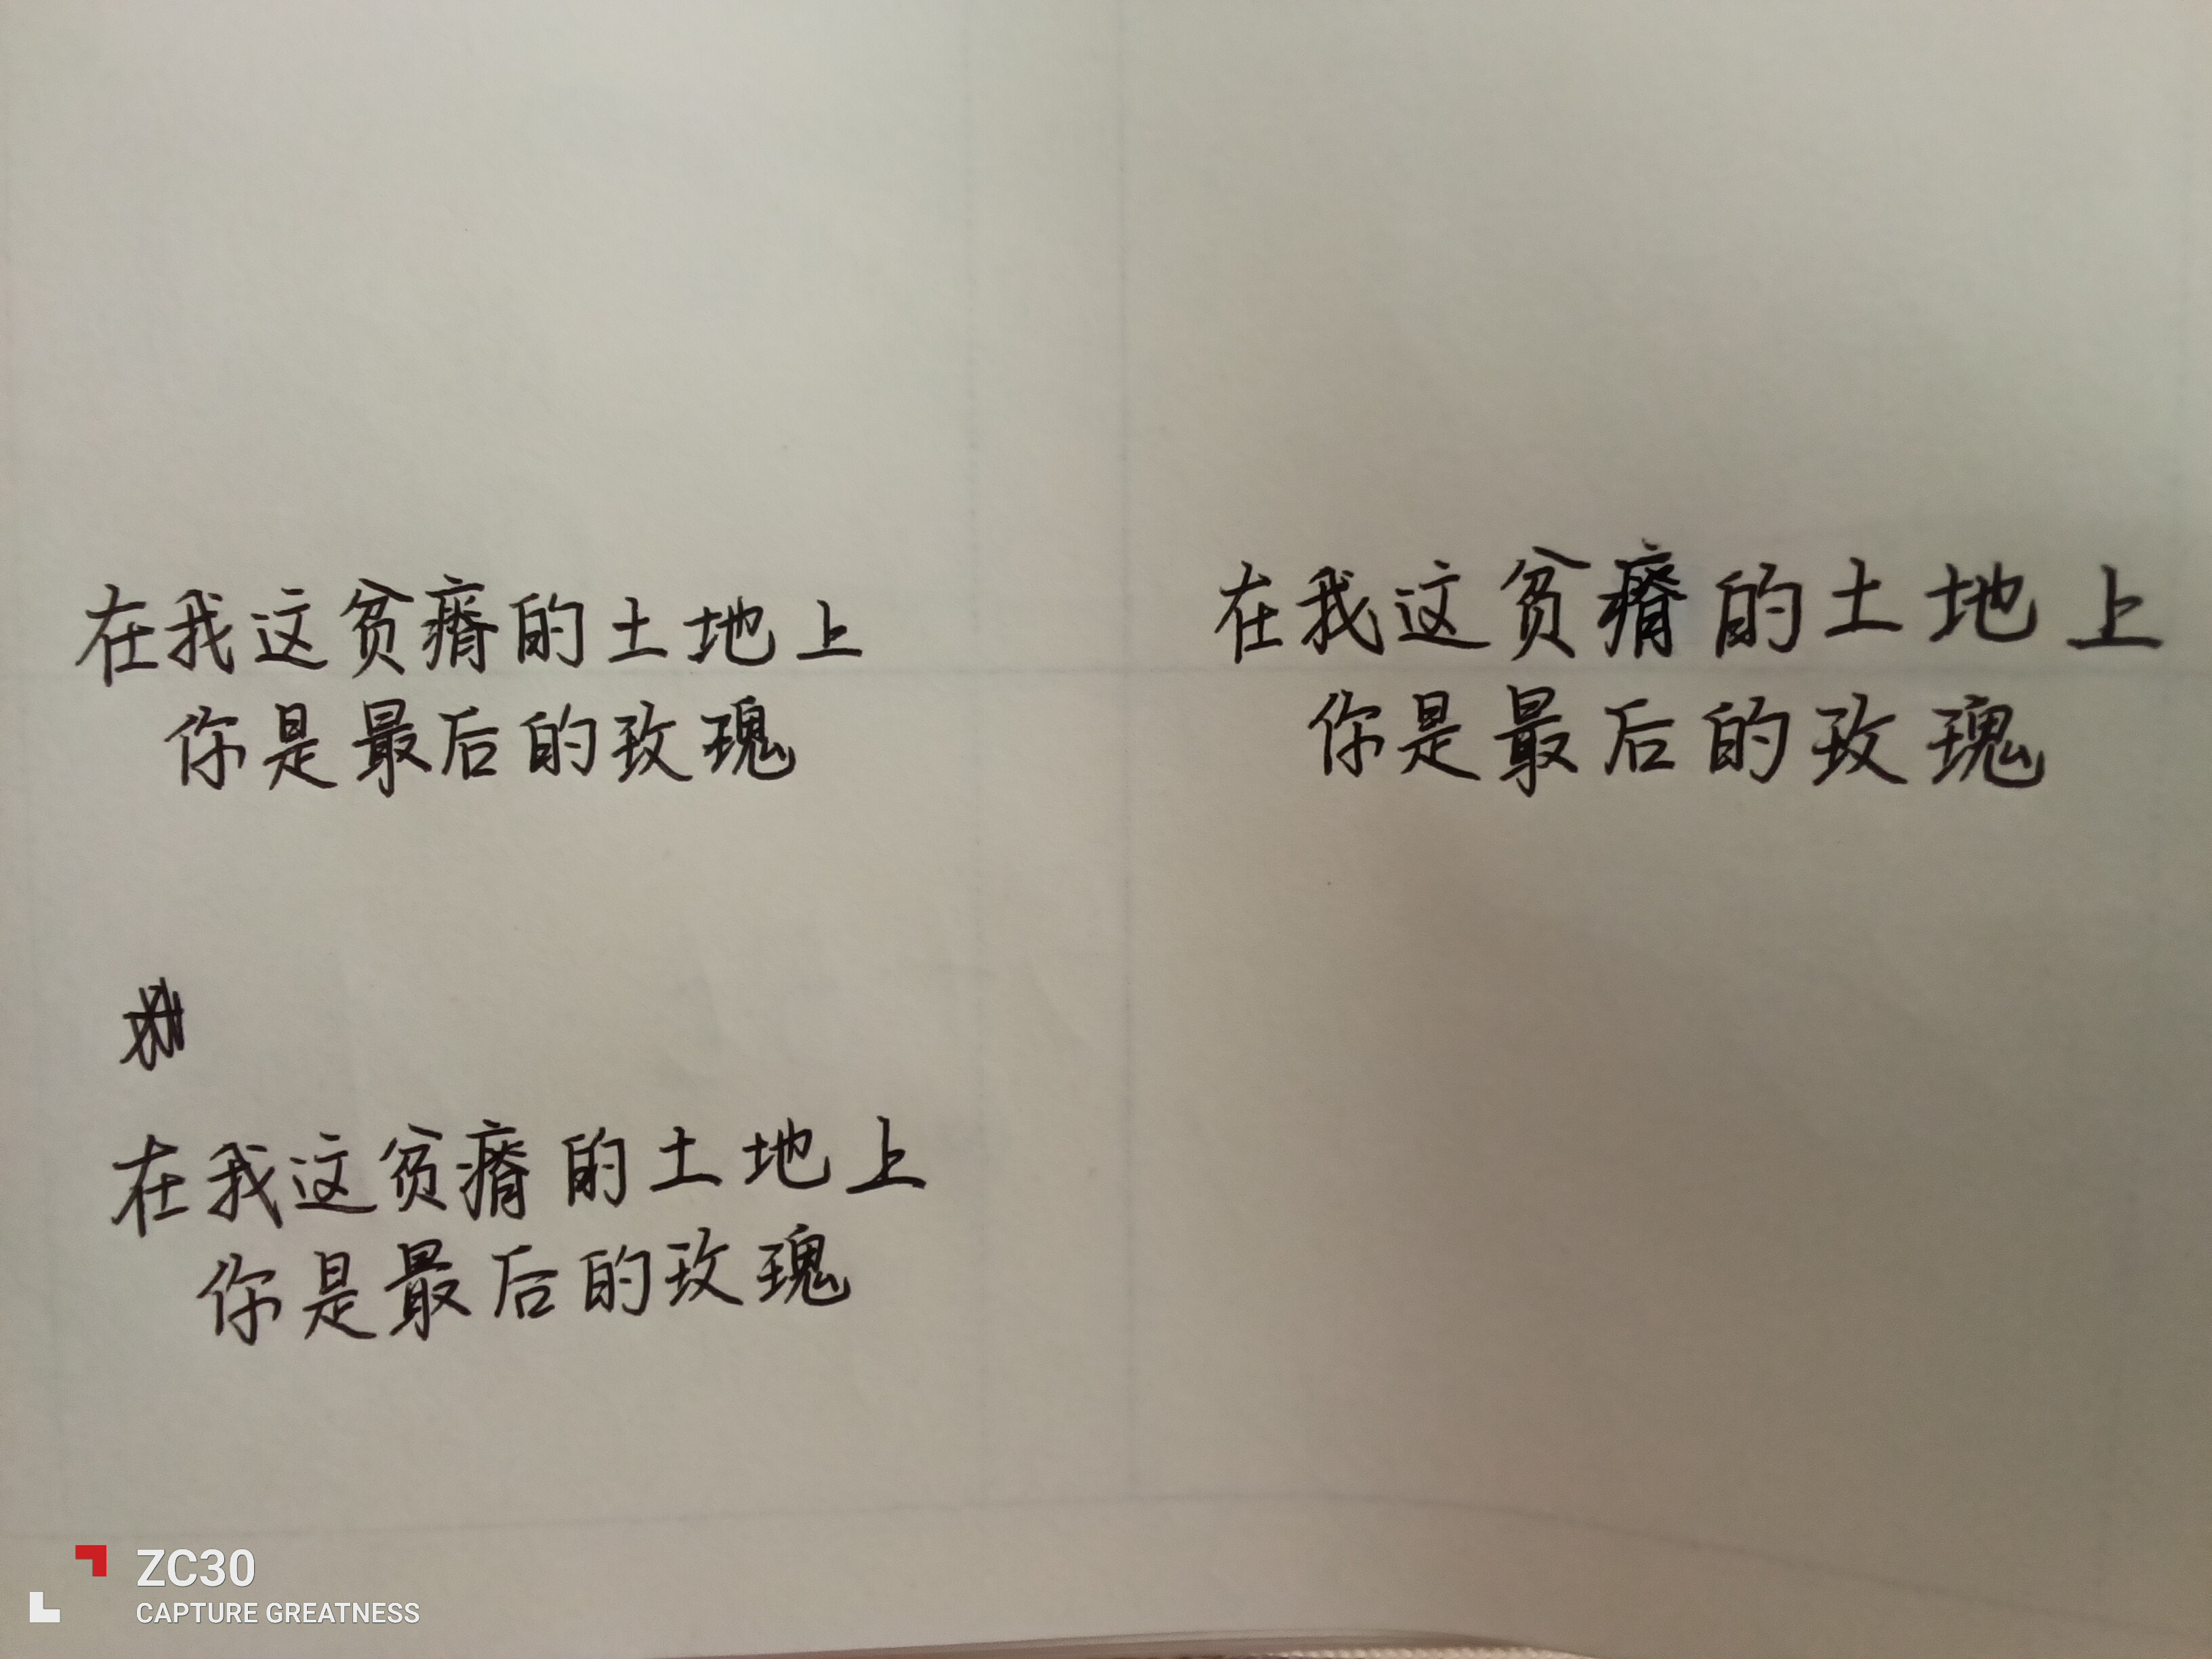 在我这贫瘠的土地上
你是最后的玫瑰
在我这贫瘠的土地上
你是最后的玫瑰
在我这贫瘠的土地上
你是最后的玫瑰
ZC30
CAPTURE GREATNESS